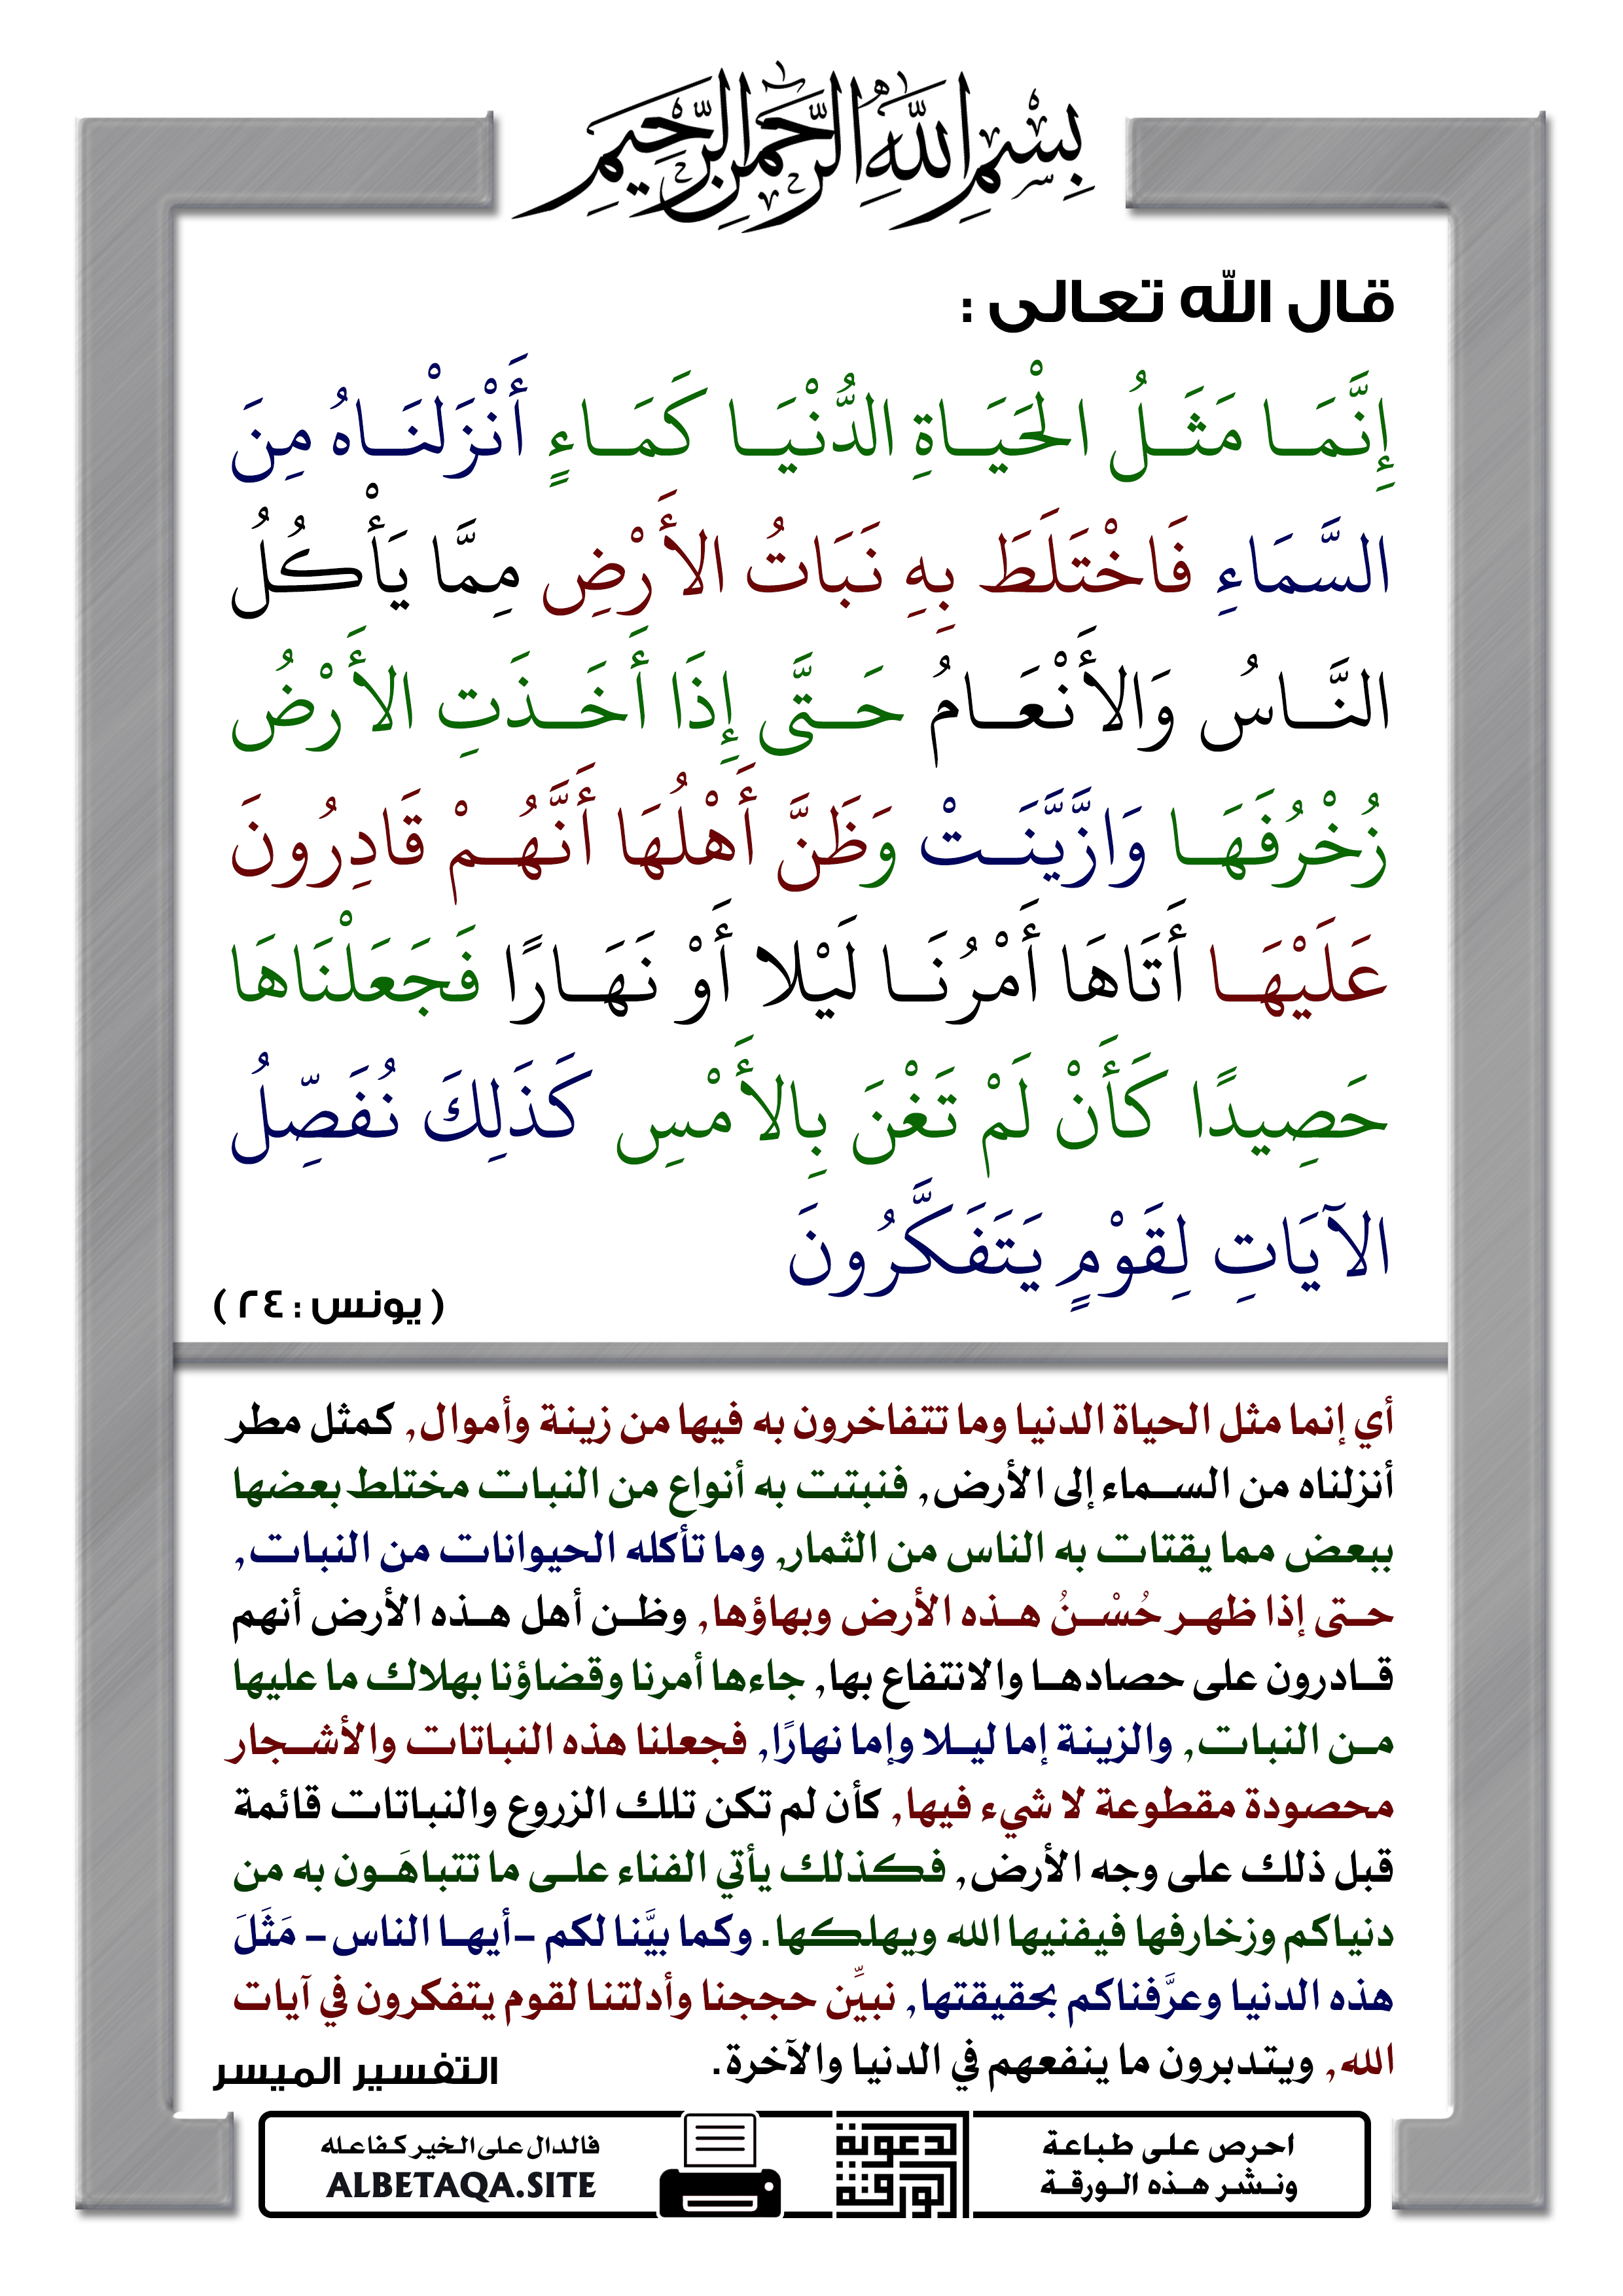 بِسْمِ اللَّهِ الرَّحْمَنِ الرَّحِيمِ
قال الله تعالى :
إِنَّمَا مَثَلُ الْحَيَاةِ الدُّنْيَا كَمَاءٍ أَنْزَلْنَاهُ مِنَ
السَّمَاءِ فَاخْتَلَطَ بِهِ نَبَاتُ الأَرْضِ مِمَّا يَأْكُلُ
النَّاسُ وَالأَنْعَامُ حَتَّى إِذَا أَخَذَتِ الأَرْضُ
زُخْرُفَهَا وَازَّيَّنَتْ وَظَنَّ أَهْلُهَا أَنَّهُمْ قَادِرُونَ
عَلَيْهَا أَتَاهَا أَمْرُنَا لَيْلا أَوْ نَهَارًا فَجَعَلْنَاهَا
حَصِيدًا كَأَنْ لَمْ تَغْنَ بِالأَمْسِ كَذَلِكَ نُفَصِّلُ
الآيَاتِ لِقَوْمٍ يَتَفَكَّرُونَ
( يونس : ٢٤ )
أي إنما مثل الحياة الدنيا وما تتفاخرون به فيها من زينة وأموال, كمثل مطر
أنزلناه من السماء إلى الأرض, فنبتت به أنواع من النبات مختلط بعضها
ببعض مما يقتات به الناس من الثمار, وما تأكله الحيوانات من النبات,
حتى إذا ظهر حُسْنُ هذه الأرض وبهاؤها, وظن أهل هذه الأرض أنهم
قادرون على حصادها والانتفاع بها, جاءها أمرنا وقضاؤنا بهلاك ما عليها
من النبات, والزينة إما ليلا وإما نهارًا, فجعلنا هذه النباتات والأشجار
محصودة مقطوعة لا شيء فيها, كأن لم تكن تلك الزروع والنباتات قائمة
قبل ذلك على وجه الأرض, فكذلك يأتي الفناء على ما تتباهَون به من
دنياكم وزخارفها فيفنيها الله ويهلكها. وكما بيَّنا لكم -أيها الناس- مَثَلَ
هذه الدنيا وعرَّفناكم بحقيقتها, نبيِّن حججنا وأدلتنا لقوم يتفكرون في آيات
الله, ويتدبرون ما ينفعهم في الدنيا والآخرة.
التفسير الميسر
احرص على طباعة
ونشر هذه الورقة
الورقة
الدعوية
فالدال على الخير كفاعله
ALBETAQA.SITE